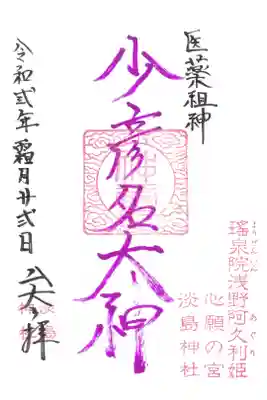 医薬祖神
少彦名大神
令和弐年霜月廿弐日
大々拝
瑤泉院浅野阿久利姫
ようぜんいん
あぐり
心願の宮
淡島神社